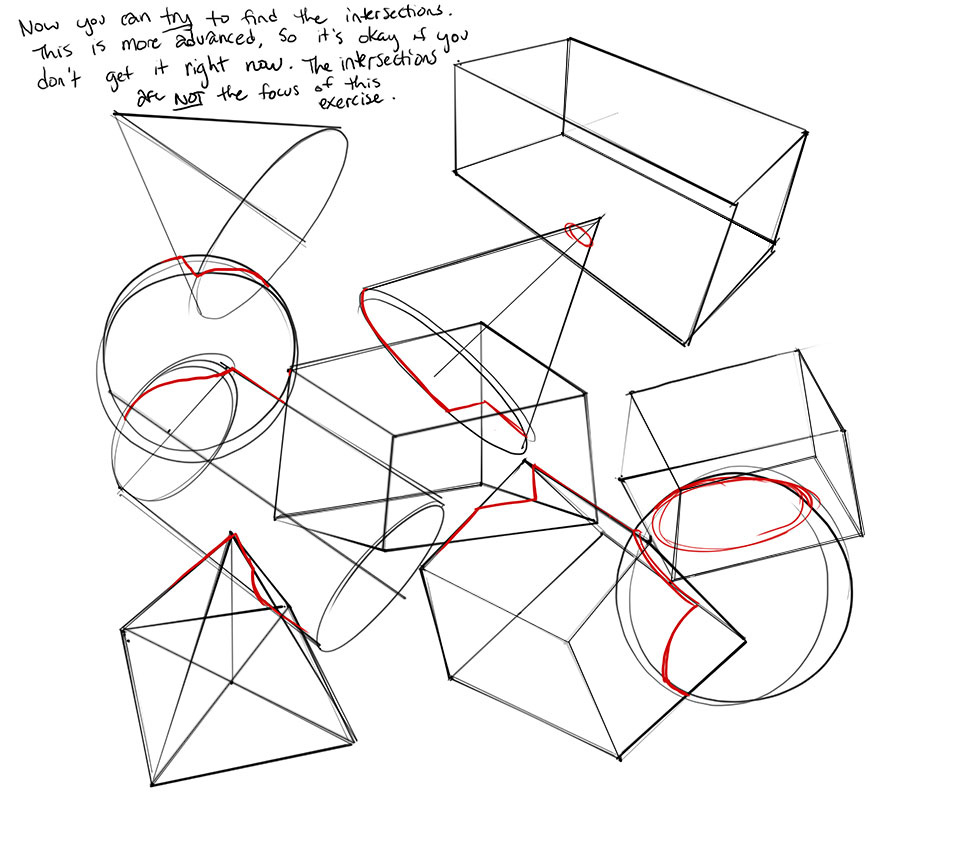 Now you can try to find the intersections.
This is more advanced, so it's okay if you
don't get it right now. The intersections
are NOT the focus of this
exercise.